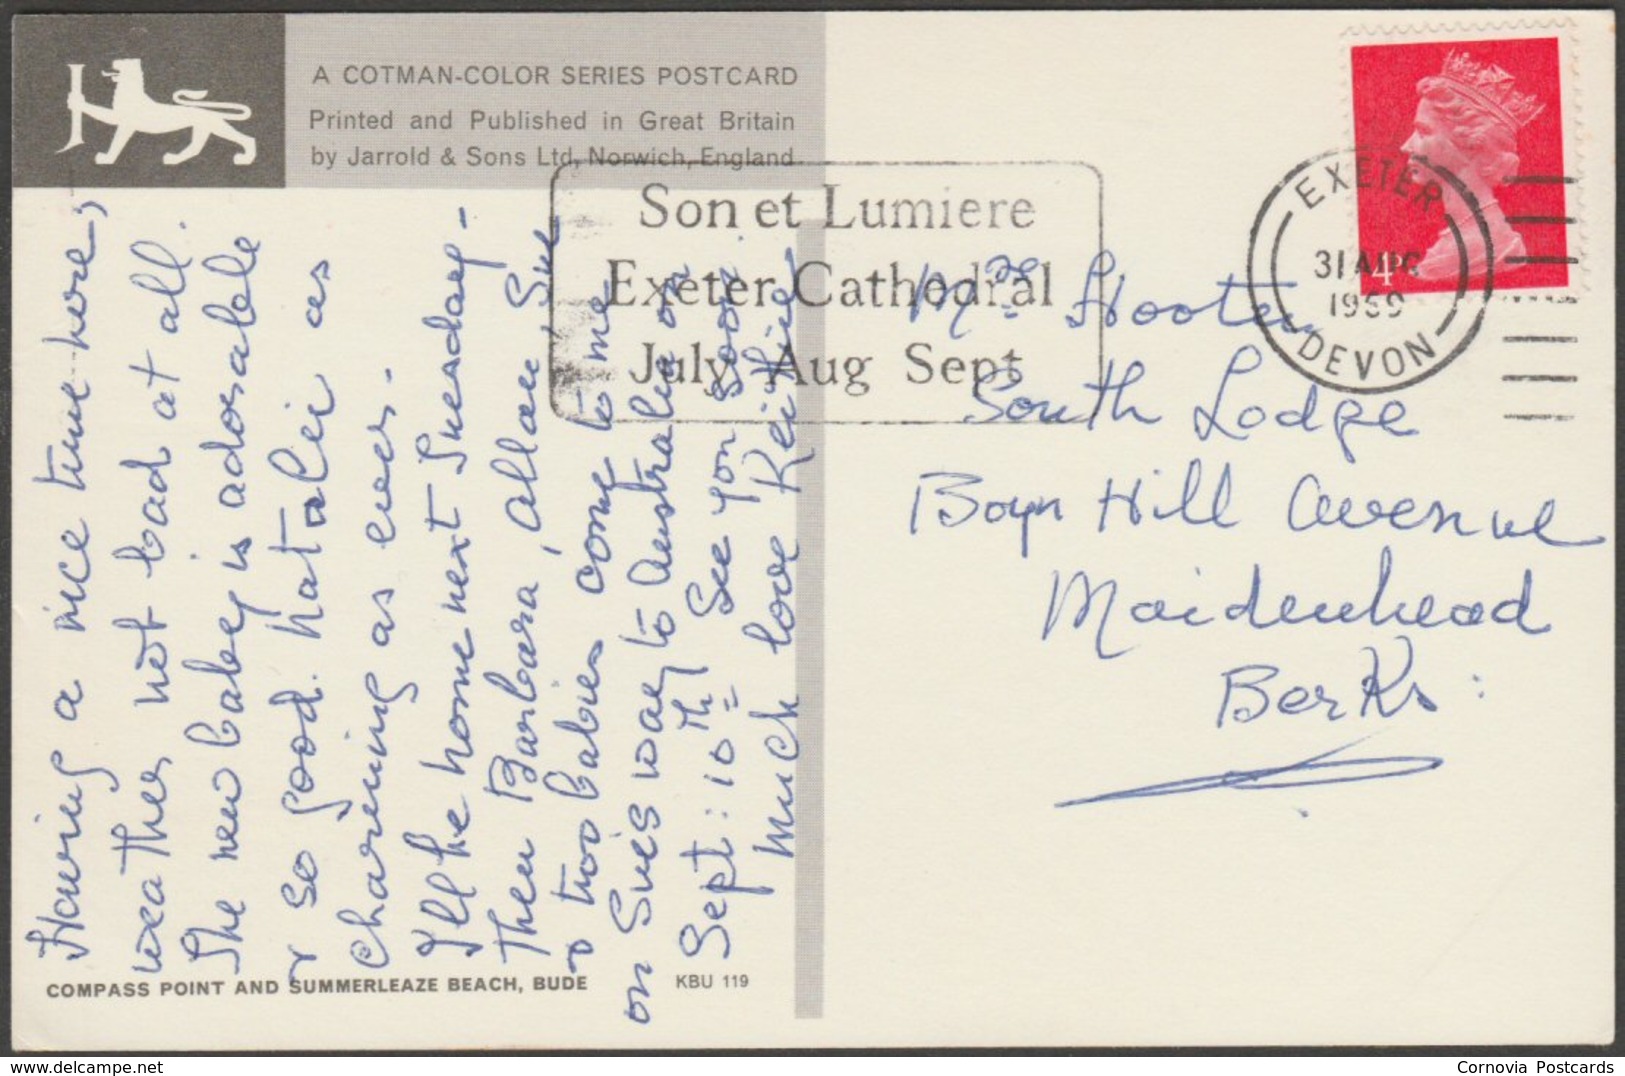 A COTMAN-COLOR SERIES POSTCARD
Printed and Published in Great Britain
by Jarrold & Sons Ltd, Norwich, England.
Son et Lumiere
Exeter Cathedral
July Aug Sept
EXETER
31 AUG
1969
DEVON
4P
Having a nice time here,
weather not bad at all.
The new baby is adorable
& so good. Natalie as
charming as ever.
I'll be home next Tuesday -
Then Barbara, Allan, Sue
& two babies come to me
on Sue's way to Australia on
Sept: 10th. See you soon
Much love Keithie
Mrs Hooten
South Lodge
Boyn Hill Avenue
Maidenhead
Berks:
COMPASS POINT AND SUMMERLEAZE BEACH, BUDE
KBU 119
Cornovia Postcards